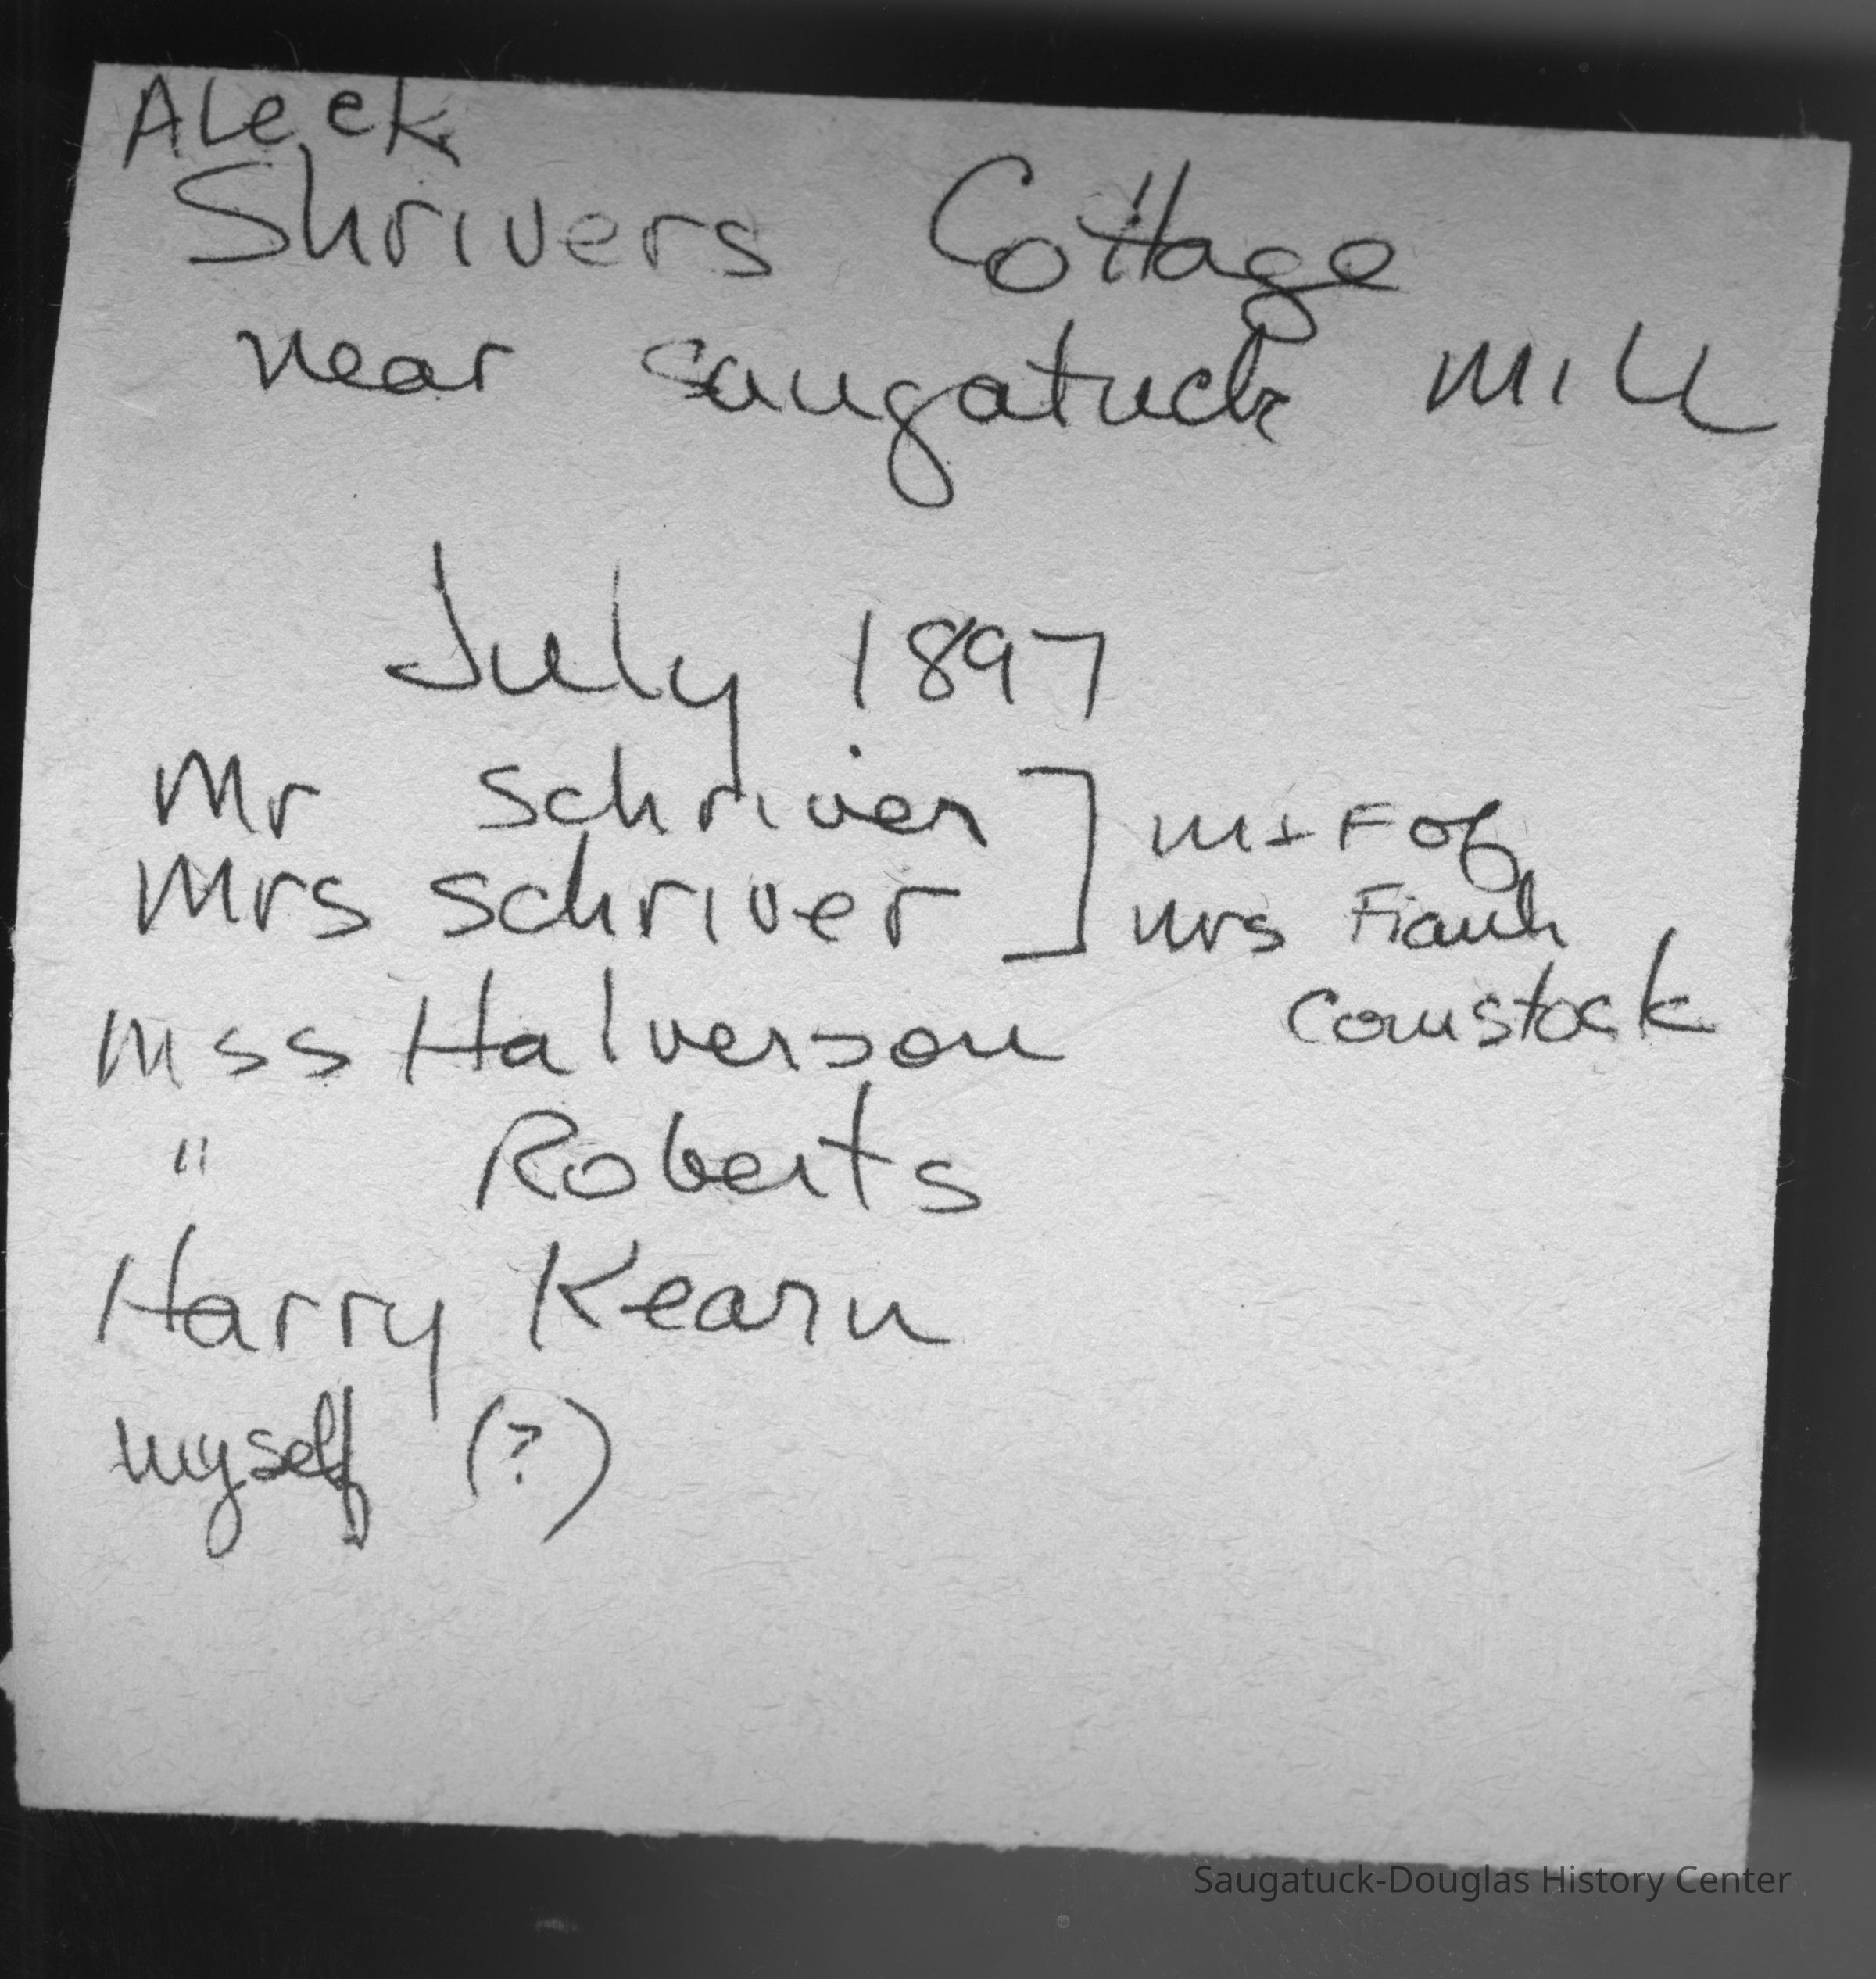 Aleck
Shrivers Cottage
near Saugatuck Mill
July 1897
Mr Schriver ] M + F of
Mrs Schriver ] Mrs Frank
Comstock
Mss Halverson
" Roberts
Harry Kearn
myself (?)
Saugatuck-Douglas History Center